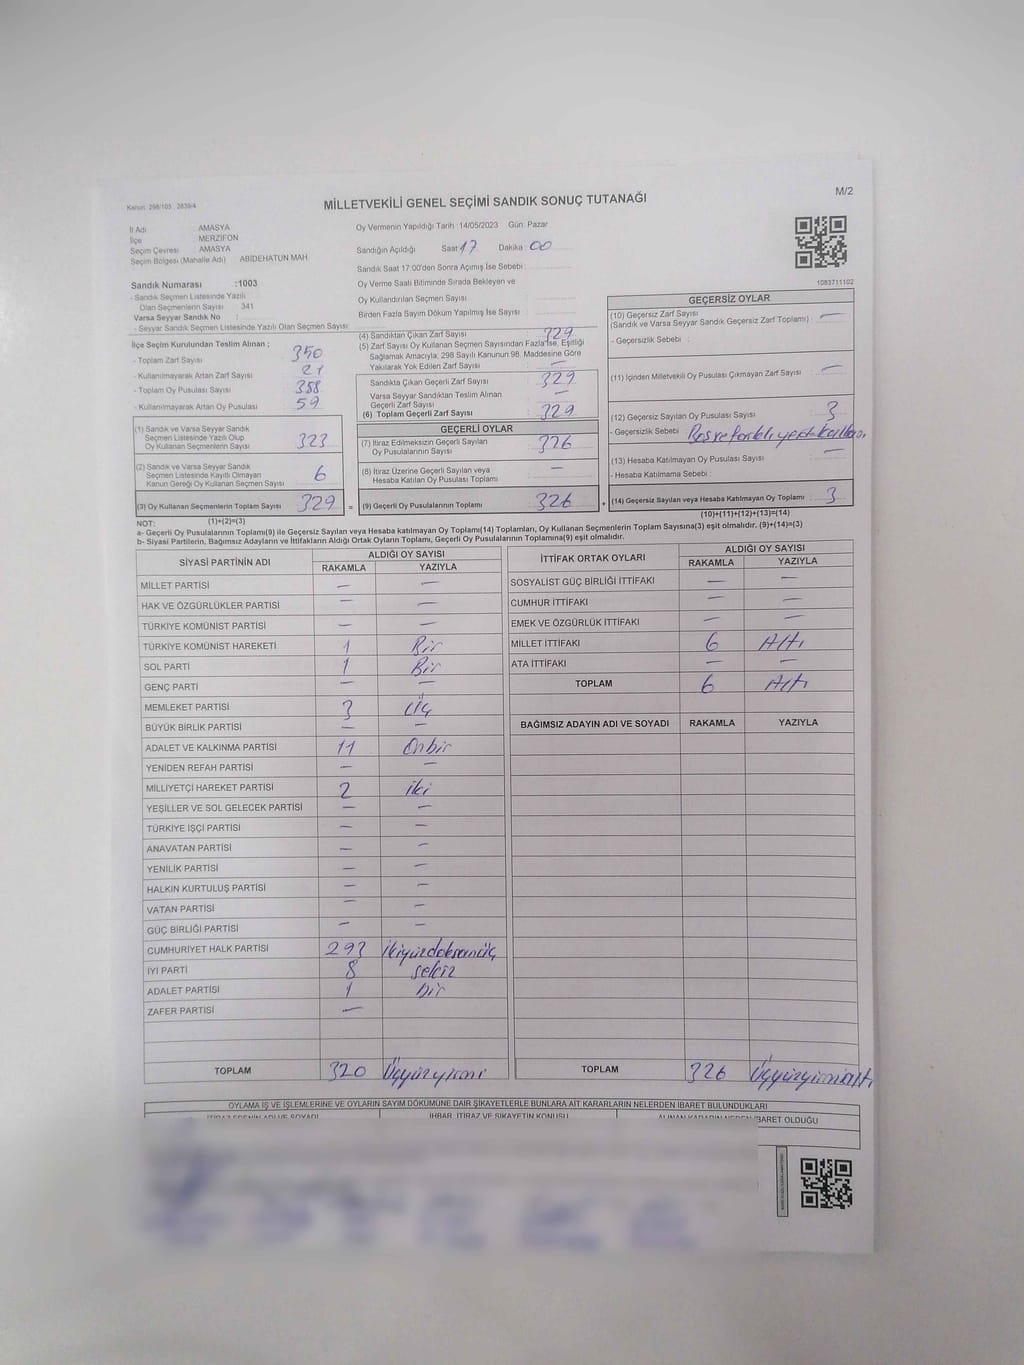 M/2
Kanun: 298/105 , 2839/4
MİLLETVEKİLİ GENEL SEÇİMİ SANDIK SONUÇ TUTANAĞI
İl Adı AMASYA
İlçe MERZİFON
Seçim Çevresi AMASYA
Seçim Bölgesi (Mahalle Adı) ABİDEHATUN MAH
Oy Vermenin Yapıldığı Tarih :14/05/2023 Gün: Pazar
Sandığın Açıldığı Saat 17 Dakika : 00
Sandık Saat 17:00'den Sonra Açımış İse Sebebi :
Oy Verme Saati Bitiminde Sırada Bekleyen ve
Oy Kullandırılan Seçmen Sayısı
Birden Fazla Sayım Döküm Yapılmış İse Sayısı :
1083711102
Sandık Numarası :1003
- Sandık Seçmen Listesinde Yazılı
Olan Seçmenlerin Sayısı 341
Varsa Seyyar Sandık No :
- Seyyar Sandık Seçmen Listesinde Yazılı Olan Seçmen Sayısı
İlçe Seçim Kurulundan Teslim Alınan ;
- Toplam Zarf Sayısı 350
- Kullanılmayarak Artan Zarf Sayısı 21
- Toplam Oy Pusulası Sayısı 388
- Kullanılmayarak Artan Oy Pusulası 59
(1) Sandık ve Varsa Seyyar Sandık
Seçmen Listesinde Yazılı Olup
Oy Kullanan Seçmenlerin Sayısı 323
(2) Sandık ve Varsa Seyyar Sandık
Seçmen Listesinde Kayıtlı Olmayan
Kanun Gereği Oy Kullanan Seçmen Sayısı 6
(3) Oy Kullanan Seçmenlerin Toplam Sayısı 329 =
(1)+(2)=(3)
(4) Sandıktan Çıkan Zarf Sayısı 329
(5) Zarf Sayısı Oy Kullanan Seçmen Sayısından Fazla İse, Eşitliği
Sağlamak Amacıyla, 298 Sayılı Kanunun 98. Maddesine Göre
Yakılarak Yok Edilen Zarf Sayısı : —
Sandıkta Çıkan Geçerli Zarf Sayısı 329
Varsa Seyyar Sandıktan Teslim Alınan
Geçerli Zarf Sayısı —
(6) Toplam Geçerli Zarf Sayısı 329
GEÇERLİ OYLAR
(7) İtiraz Edilmeksizin Geçerli Sayılan
Oy Pusulasının Sayısı 326
(8) İtiraz Üzerine Geçerli Sayılan veya
Hesaba Katılan Oy Pusulası Toplamı —
(9) Geçerli Oy Pusulalarının Toplamı 326 +
GEÇERSİZ OYLAR
(10) Geçersiz Zarf Sayısı
(Sandık ve Varsa Seyyar Sandık Geçersiz Zarf Toplamı) : —
- Geçersizlik Sebebi :
(11) İçinden Milletvekili Oy Pusulası Çıkmayan Zarf Sayısı : —
(12) Geçersiz Sayılan Oy Pusulası Sayısı : 3
- Geçersizlik Sebebi
(13) Hesaba Katılmayan Oy Pusulası Sayısı : —
- Hesaba Katılmama Sebebi :
(14) Geçersiz Sayılan veya Hesaba Katılmayan Oy Toplamı : 3
(10)+(11)+(12)+(13)=(14)
NOT:
a- Geçerli Oy Pusulalarının Toplamı(9) ile Geçersiz Sayılan veya Hesaba katılmayan Oy Toplamı(14) Toplamları, Oy Kullanan Seçmenlerin Toplam Sayısına(3) eşit olmalıdır. (9)+(14)=(3)
b- Siyasi Partilerin, Bağımsız Adayların ve İttifakların Aldığı Ortak Oyların Toplamı, Geçerli Oy Pusulalarının Toplamına(9) eşit olmalıdır.
SİYASİ PARTİNİN ADI ALDIĞI OY SAYISI
RAKAMLA YAZIYLA
MİLLET PARTİSİ — —
HAK VE ÖZGÜRLÜKLER PARTİSİ — —
TÜRKİYE KOMÜNİST PARTİSİ — —
TÜRKİYE KOMÜNİST HAREKETİ 1 Bir
SOL PARTİ 1 Bir
GENÇ PARTİ — —
MEMLEKET PARTİSİ 3 Üç
BÜYÜK BİRLİK PARTİSİ — —
ADALET VE KALKINMA PARTİSİ 11 Onbir
YENİDEN REFAH PARTİSİ — —
MİLLİYETÇİ HAREKET PARTİSİ 2 iki
YEŞİLLER VE SOL GELECEK PARTİSİ — —
TÜRKİYE İŞÇİ PARTİSİ — —
ANAVATAN PARTİSİ — —
YENİLİK PARTİSİ — —
HALKIN KURTULUŞ PARTİSİ — —
VATAN PARTİSİ — —
GÜÇ BİRLİĞİ PARTİSİ — —
CUMHURİYET HALK PARTİSİ 293 ikiyüzdoksanüç
İYİ PARTİ 8 sekiz
ADALET PARTİSİ 1 bir
ZAFER PARTİSİ —
TOPLAM 320 Üçyüzyirmi
İTTİFAK ORTAK OYLARI ALDIĞI OY SAYISI
RAKAMLA YAZIYLA
SOSYALİST GÜÇ BİRLİĞİ İTTİFAKI — —
CUMHUR İTTİFAKI — —
EMEK VE ÖZGÜRLÜK İTTİFAKI — —
MİLLET İTTİFAKI 6 Altı
ATA İTTİFAKI — —
TOPLAM 6 Altı
BAĞIMSIZ ADAYIN ADI VE SOYADI RAKAMLA YAZIYLA
TOPLAM 326 Üçyüzyirmialtı
OYLAMA İŞ VE İŞLEMLERİNE VE OYLARIN SAYIM DÖKÜMÜNE DAİR ŞİKAYETLERLE BUNLARA AİT KARARLARIN NELERDEN İBARET BULUNDUKLARI
İHBAR, İTİRAZ VE ŞİKAYETİN KONUSU ALINAN KARARIN NEDEN İBARET OLDUĞU